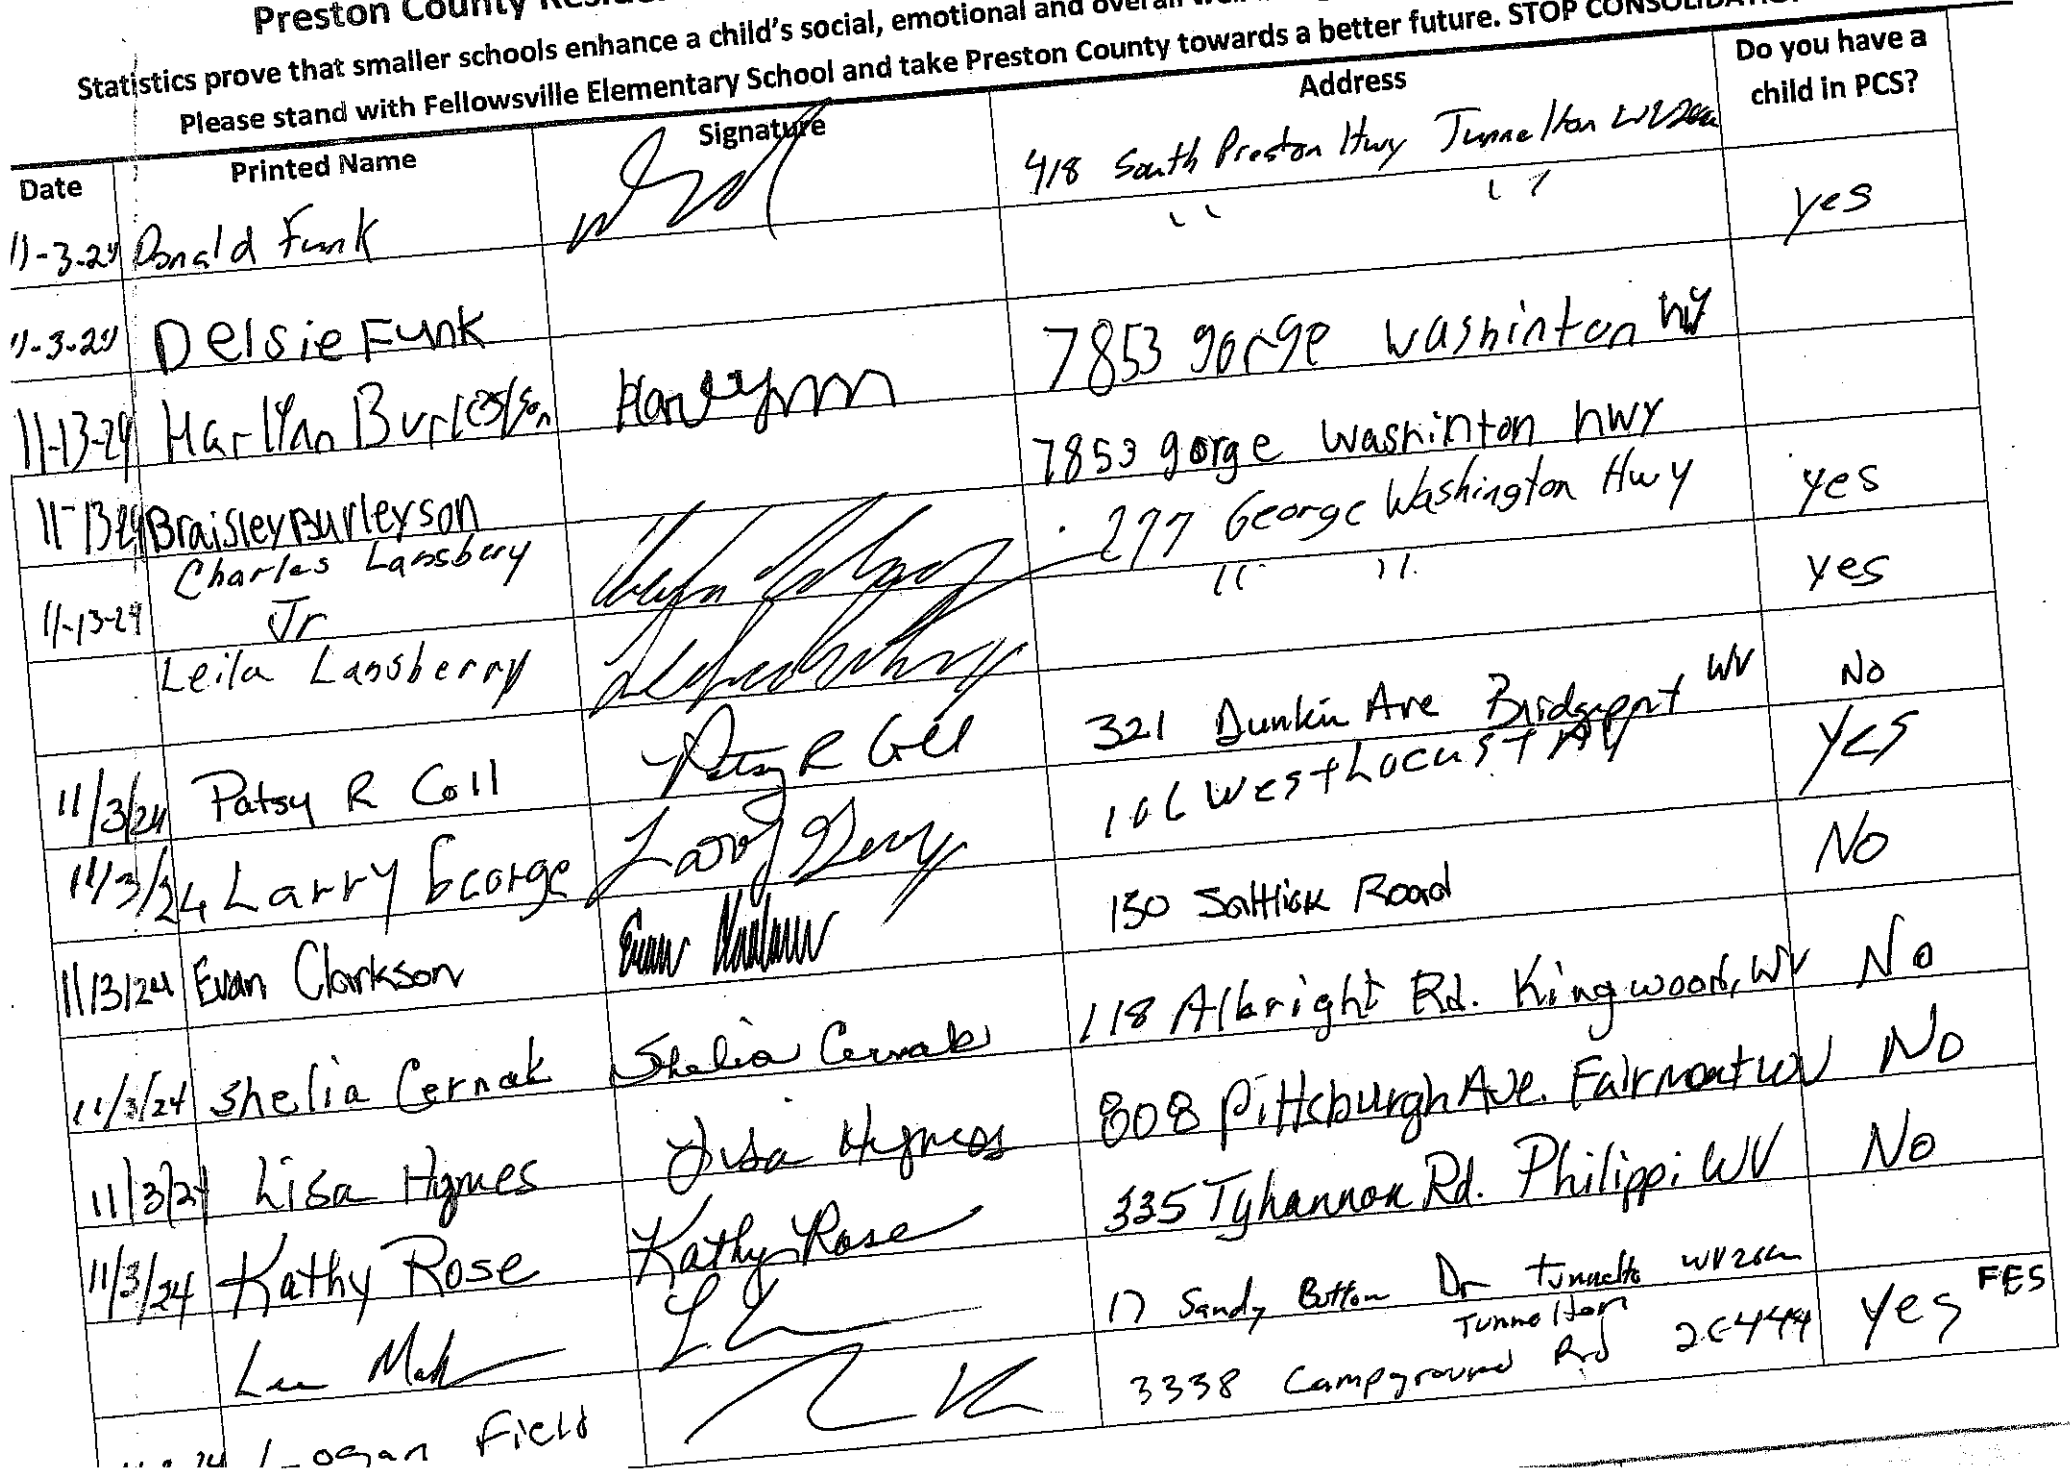 Preston County
Statistics prove that smaller schools enhance a child's social, emotional and overall
Please stand with Fellowsville Elementary School and take Preston County towards a better future. STOP CONSOLIDATION
Date Printed Name Signature Address Do you have a child in PCS?
11-3-24 Donald Funk 418 South Preston Hwy Tunnelton WV yes
11-3-24 Delsie Funk " "
11-13-24 Harllynn Burleyson 7853 gorge washinton hwy
11-13-24 Braisley Burleyson 7853 gorge washinton hwy
11-13-24 Charles Lansberry Jr 277 George Washington Hwy yes
Leila Lansberry " " yes
11/3/24 Patsy R Coll Patsy R Coll 321 Dunkin Ave Bridgeport WV No
11/3/24 Larry George Larry George 106 West Locust AV yes
11/3/24 Evan Clarkson Evan 150 Saltlick Road No
11/3/24 Shelia Cernak Shelia Cernak 118 Albright Rd. Kingwood, WV No
11/3/24 Lisa Hymes Lisa Hymes 808 Pittsburgh Ave. Fairmont WV No
11/3/24 Kathy Rose Kathy Rose 335 Tyhannon Rd. Philippi WV No
Lee 17 Sandy Button Dr Tunnelton WV
Logan Field 3338 Campground Rd Tunnelton 26444 yes FES